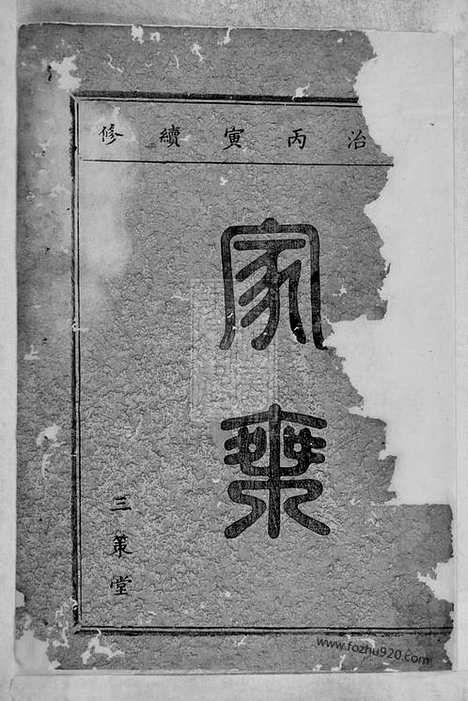 治丙寅續修
家乘
三策堂
www.fozhu920.com